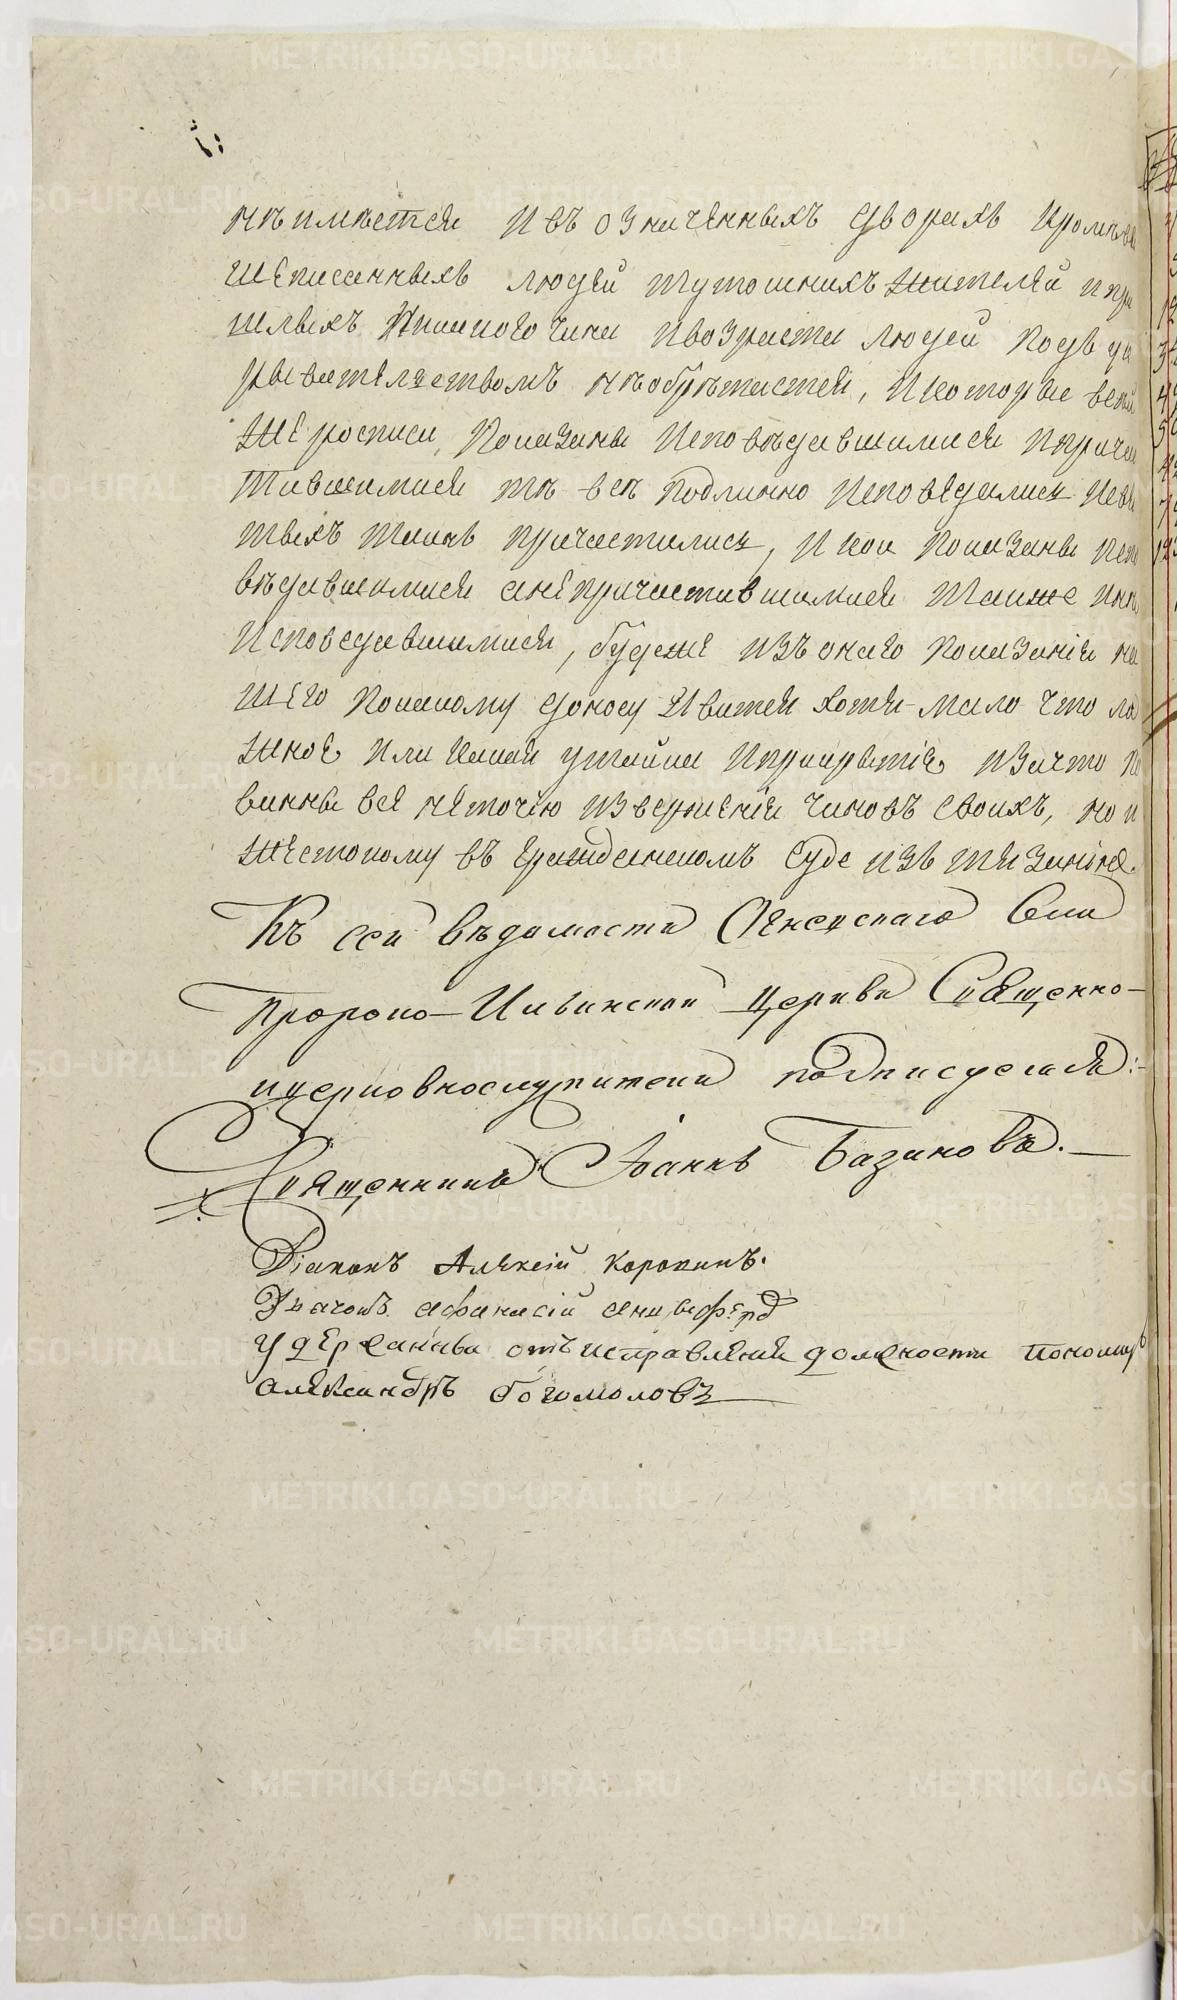 нѣимѣется И въ означенныхъ дворахъ Кромѣвы
шеписанныхъ людей тутошнихъ жителей и при
шлыхъ Никакого чина Ивозраста людей Подъ ук
рывателствомъ нѣобрѣтается, И которые всей
же росписи, Показаны Исповѣдавшимися Ипричас
тившимися тѣ всѣ Подлинно Исповедались Исвя
тыхъ таинъ причастились, И кои Показаны Испо
вѣдавшимися анепричастившимися также Ине
Исповедавшимися, будеже изъ онаго Показания на
шего Покакому доносу Явится хотя мало что ло
жное или какая утайка Иприкрытіе изачто По
винны все неточію изверженія чиновъ своихъ, но и
жестокому въ гражданскомъ суде изтязанію.
Къ сей вѣдомости Села
пророко-Ильинской Церкви Священно-
ицерковнослужители подписуемся:
Священникъ Іоаннъ Базиновъ.
Діаконъ Алексій Коровинъ.
Дьячокъ афанасій
Удержанны отъ исправления должности пономар
александръ богомоловъ
METRIKI.GASO-URAL.RU